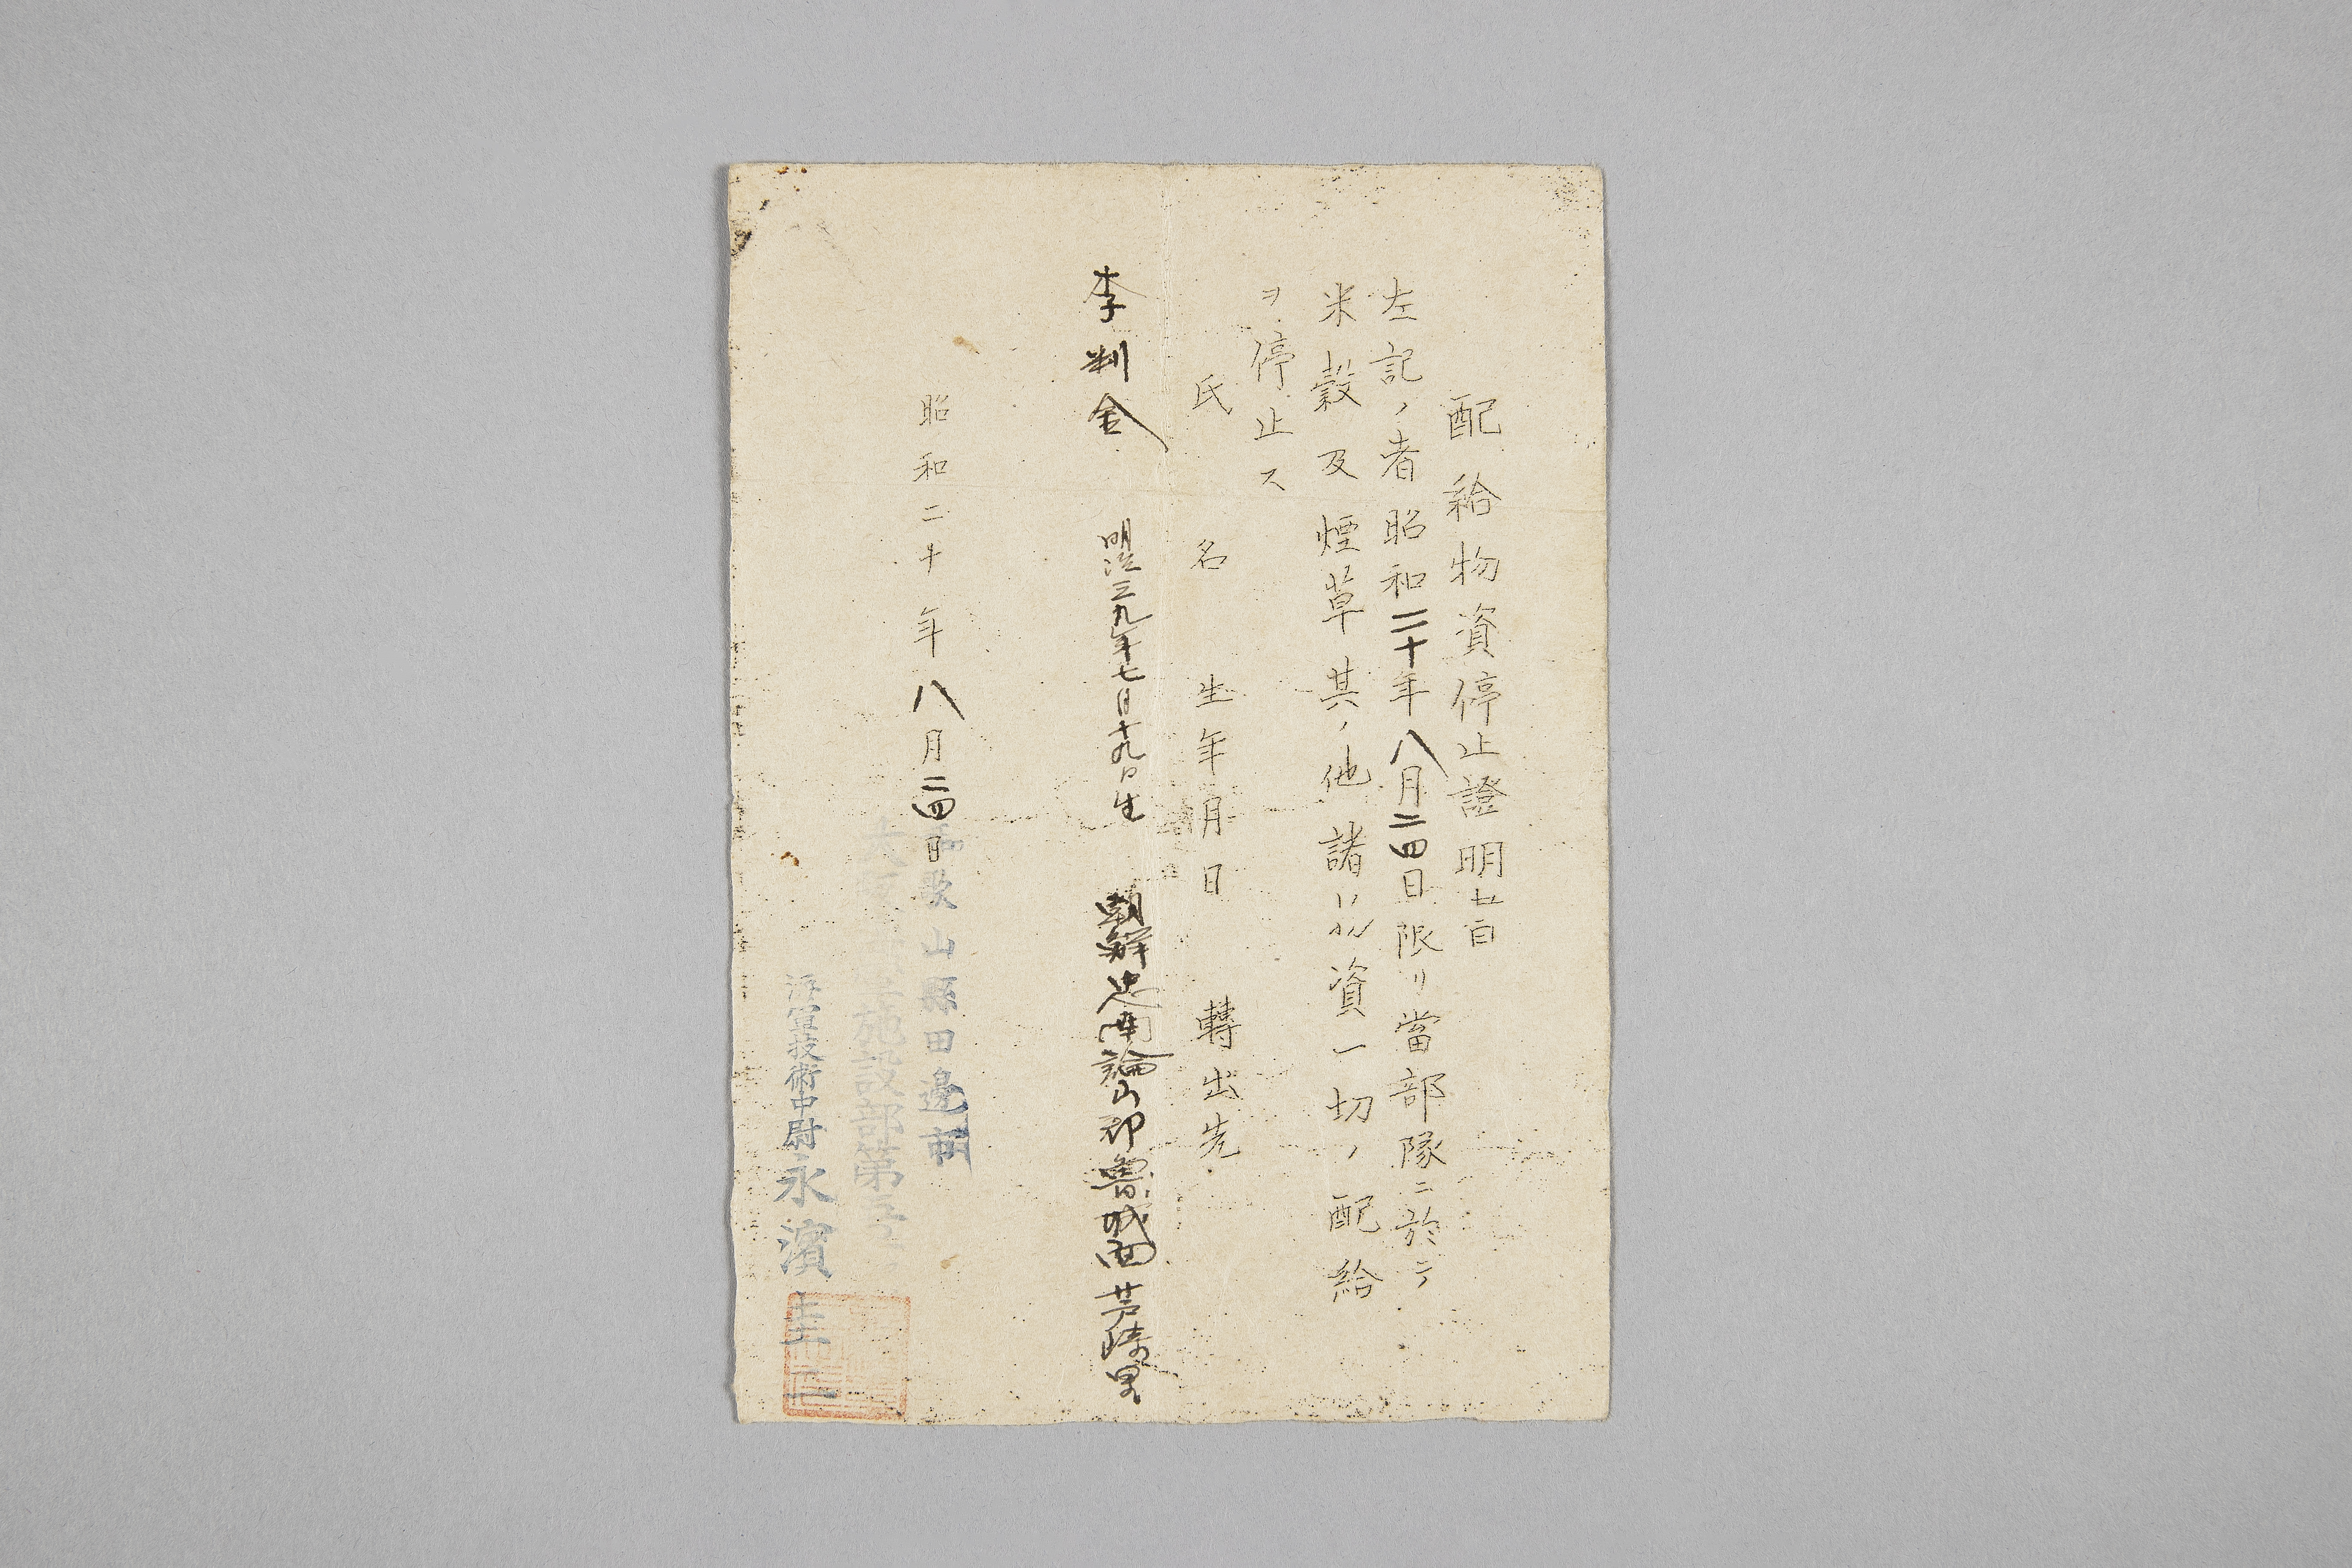 配給物資停止證明書
左記ノ者昭和二十年八月二四日限リ當部隊ニ於テ
米穀及煙草其ノ他諸物資一切ノ配給
ヲ停止ス
氏名 生年月日 轉出先
李判金 明治三九年七月十九日生 朝鮮忠南論山郡魯城面芦陵里
昭和二十年八月二四日
和歌山縣田邊市
施設部第
海軍技術中尉 永濱圭二